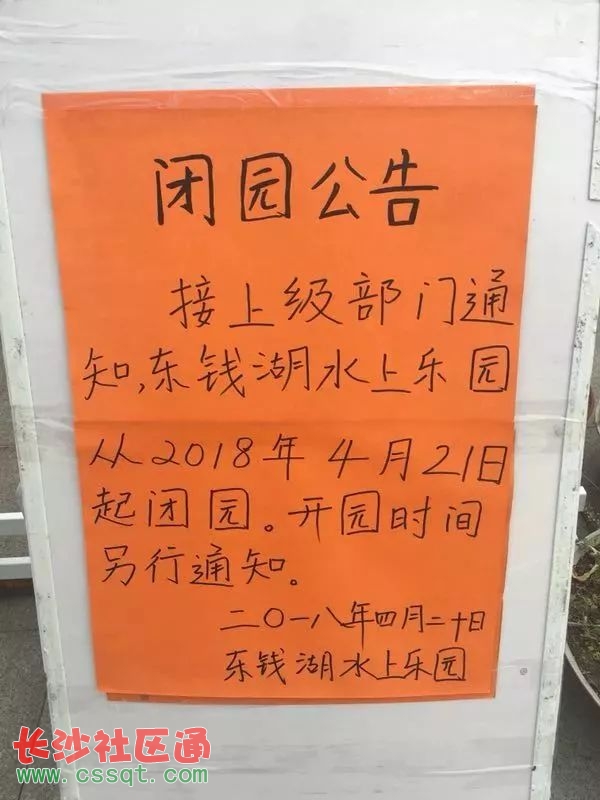 闭园公告
接上级部门通
知,东钱湖水上乐园
从2018年4月21日
起闭园。开园时间
另行通知。
二〇一八年四月二十日
东钱湖水上乐园
长沙社区通
www.cssqt.com